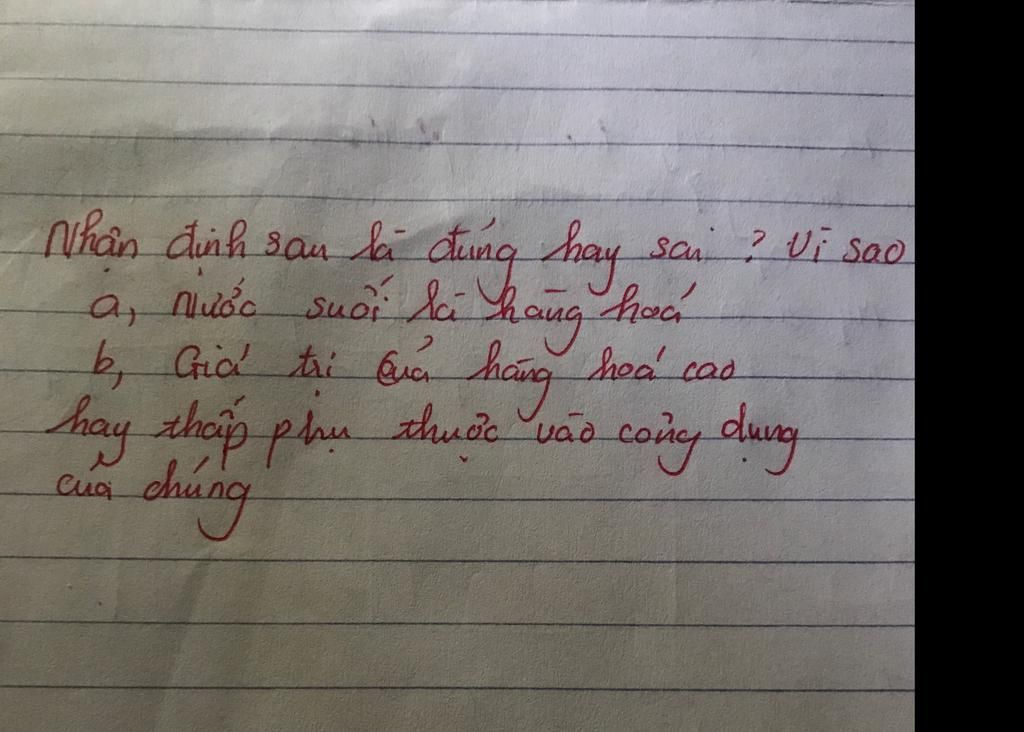 Nhận định sau là đúng hay sai ? Vì sao
a, Nước suối là hàng hoá
b, Giá trị của hàng hoá cao
hay thấp phụ thuộc vào công dụng
của chúng